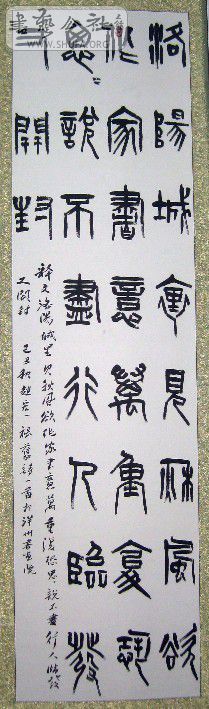 洛陽城裏見秌風欲
作家書意萬重復恐
怱〻說不盡行人臨發
又開封
釋文洛陽城里見秋風欲作家書意萬重復恐怱〻說不盡行人臨發
又開封 己丑秋趙 詩一首於洋州書畫院
書藝公社
WWW.SHUFA.ORG